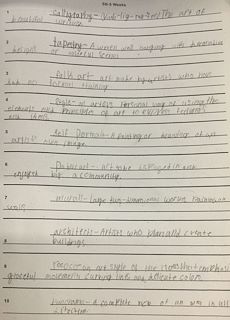 SS-3 Words
1 calligraphy - (kuh-lig-ruh-fee) The art of
beautiful writing
2 tapestry - A woven wall hanging with decorative
designs or colorful scenes
3 folk art - art made by artists who have
had no formal training
4 style - an artist's personal way of using the
elements and principles of art to express feelings
and ideas
5 self portrait - A painting or drawing of an
artist own image.
6 Public art - art to be enjoyed
enjoyed by a community.
7 mural - large two-dimensional works painted on
walls
8 architects - Artists who plan and create
buildings
9 rococo - an art style of the 1700s that emphasized
graceful movement, curving lines and delicate colors.
10 panorama - A complete view of an area in all
directions